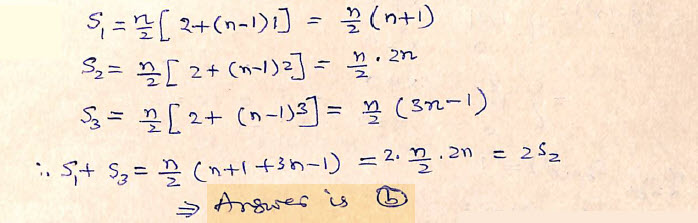 S₁ = n/2 [ 2+(n-1)1] = n/2 (n+1)
S₂ = n/2 [ 2+ (n-1)2] = n/2 . 2n
S₃ = n/2 [ 2+ (n-1)3] = n/2 (3n-1)
∴ S₁+ S₃ = n/2 (n+1+3n-1) = 2. n/2 .2n = 2S₂
⇒ Answer is ⓑ